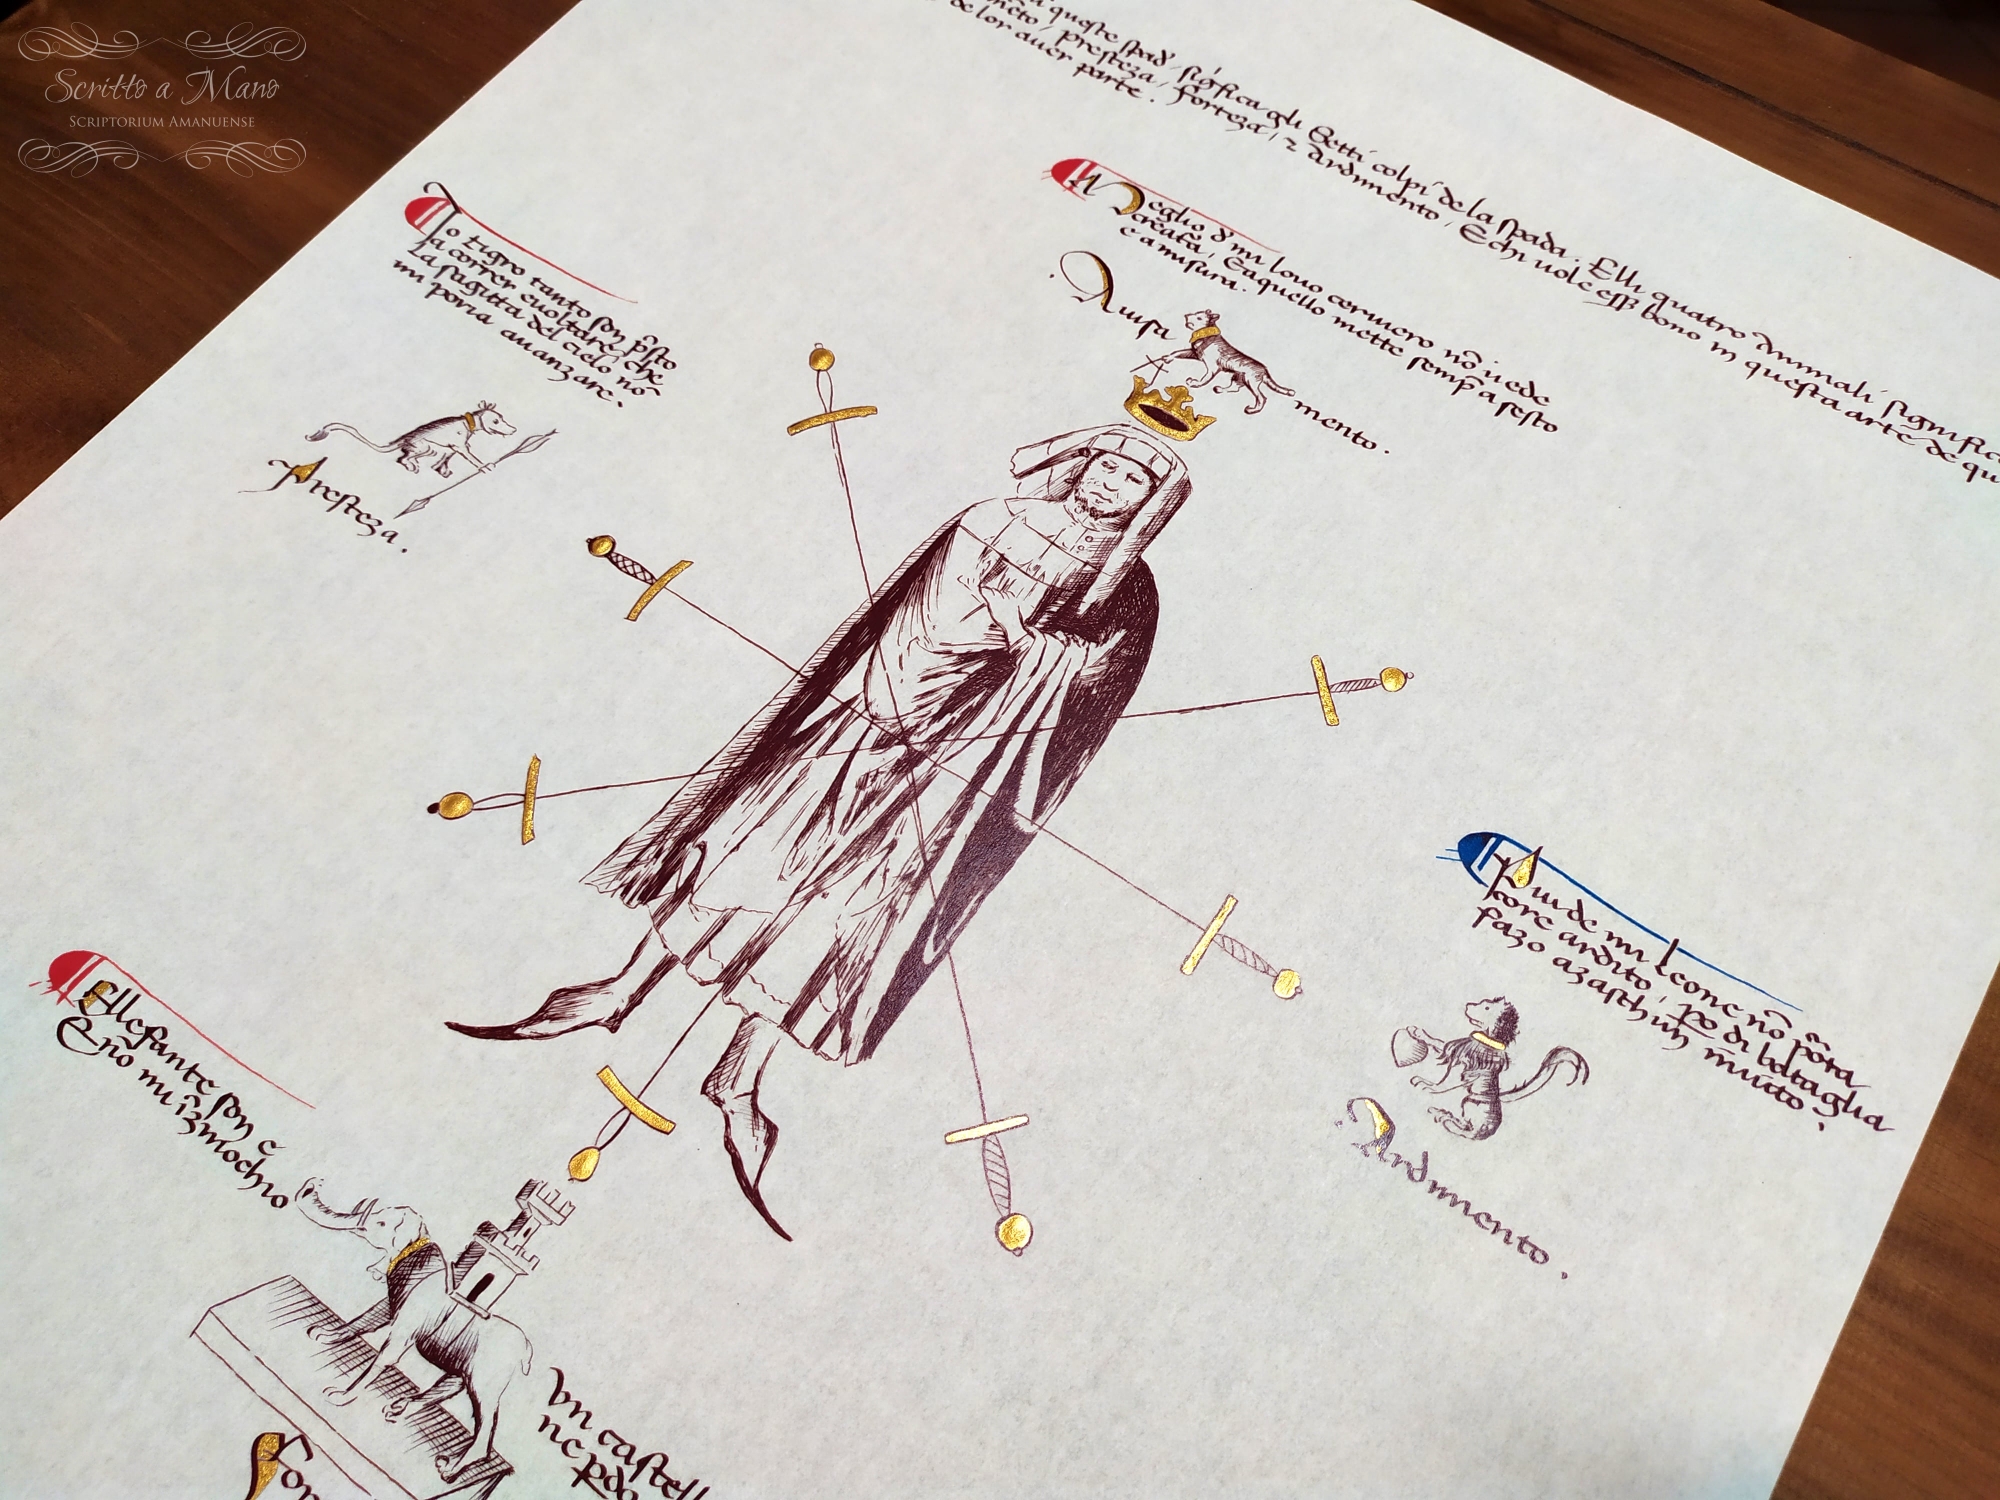 Scritto a Mano
SCRIPTORIUM AMANUENSE
queste spad, sigfica gli Setti colpi de la spada. Elli quatro animali significa
presteza, forteza, z ardimento, E chi vole eſſ bono in questa arte de qu
de lor auer parte.
Meglio d mi louo ceruero nō uede
creatā, E aquello mette semp̄ a sesto
e a misura.
Auisa
mento.
Io tigro tanto son p̄sto
a correr e uoltare, che
La sagitta del cielo nō
mi poria auanzare.
Presteza.
Piu de mi Leone nō pōrta
core ardito, po di bataglia
fazo a zaschun inuito.
Ardimento.
Ellefante son e
Un castell
E nō mi
ne p
For